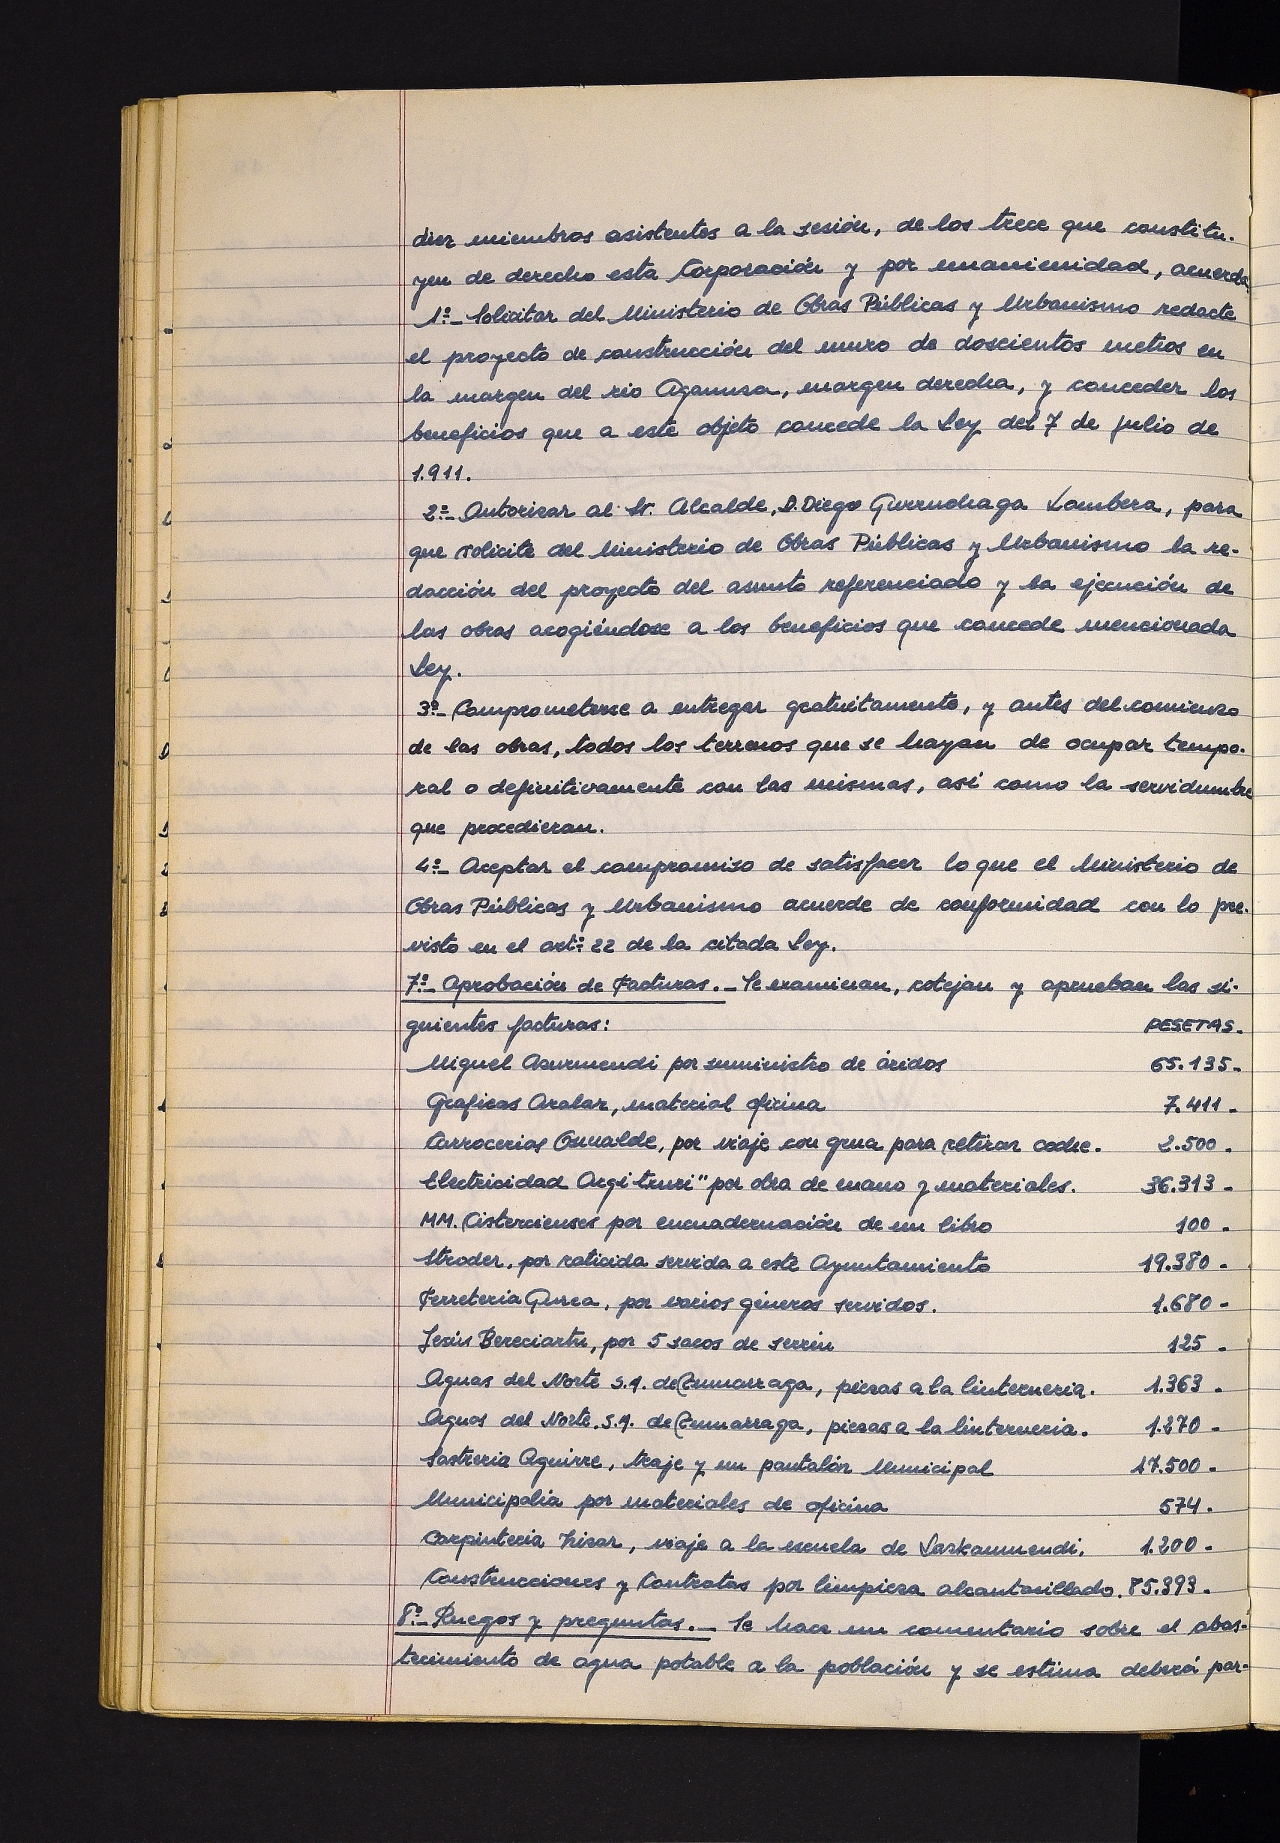 diez miembros asistentes a la sesión, de los trece que constitu-
yen de derecho esta Corporación y por unanimidad, acuerda:
1º- Solicitar del Ministerio de Obras Públicas y Urbanismo redacte
el proyecto de construcción del muro de doscientos metros en
la margen del rio Agaunza, margen derecha, y conceder los
beneficios que a este objeto concede la Ley del 7 de Julio de
1.911.
2º- Autorizar al Sr. Alcalde, D. Diego Gurruchaga Lambera, para
que solicite del Ministerio de Obras Públicas y Urbanismo la re-
dacción del proyecto del asunto referenciado y la ejecución de
las obras acogiéndose a los beneficios que concede mencionada
Ley.
3º- Comprometerse a entregar gratuitamente, y antes del comienzo
de las obras, todos los terrenos que se hayan de ocupar tempo-
ral o definitivamente con las mismas, así como la servidumbre
que procedieran.
4º- Aceptar el compromiso de satisfacer lo que el Ministerio de
Obras Públicas y Urbanismo acuerde de conformidad con lo pre-
visto en el artº 22 de la citada Ley.
7º- Aprobación de Facturas.- Se examinan, cotejan y aprueban las si-
guientes facturas: PESETAS.
Miguel Asurmendi por suministro de áridos 65.135-
Graficas Aralar, material oficina 7.411-
Carrocerias Osualde, por viaje con grua para retirar coche. 2.500.
Electricidad Argi-truri" por obra de mano y materiales. 36.313-
MM. Cistercienses por encuadernación de un libro 100-
Stroder, por raticida servida a este Ayuntamiento 19.380-
Ferreteria Gurea, por varios géneros servidos. 1.680-
Jesús Bereciartu, por 5 sacos de serrín 125-
Aguas del Norte S.A. de Zumarraga, piezas a la linterneria. 1.363.
Aguas del Norte. S.A. de Zumarraga, piezas a la linterneria. 1.270-
Sastreria Aguirre, traje y un pantalón Municipal 17.500-
Municipalia por materiales de oficina 574.
Carpinteria Lizar, viaje a la escuela de Laskaumendi. 1.200-
Construcciones y Contratas por limpieza alcantarillado. 85.393.
8º- Ruegos y preguntas.- Se hace un comentario sobre el abas-
tecimiento de agua potable a la población y se estima deberá par-